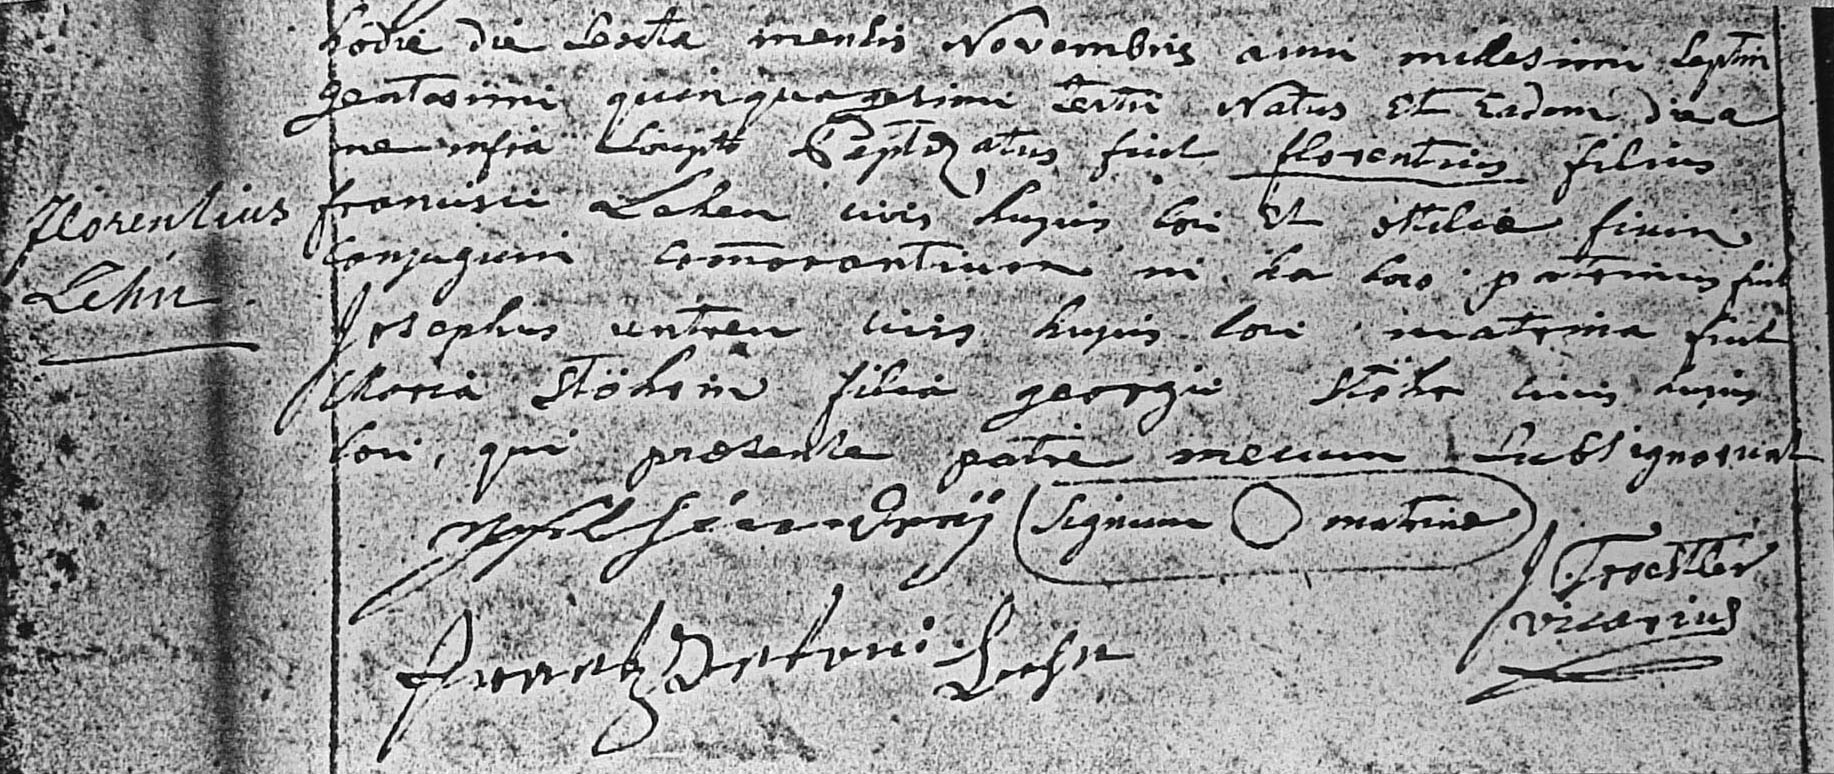 hodie die sexta mensis Novembris anni millesimi septin
gentesimi quinquagesimi tertii Natus Et Eadem die a
me infra scripto Baptizatus fuit florentius filius
Florentius francisci Lehen civis hujus loci Et otiliæ
Lehn conjugum commorantium in ha loco patrinus fuit
Josephus civis hujus loci matrina fuit
Maria Stöhrin filia georgii Stöhr civis hujus
loci, qui presente patre mecum subsignarunt
Signum O matrinæ
J Troestler
vicarius
frantz Antoni Lehn